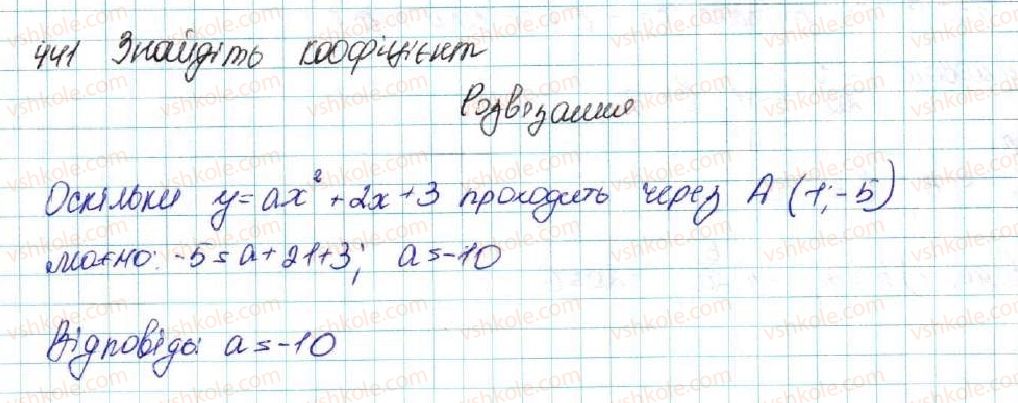 441 Знайдіть коефіцієнт
Розв'язання
Оскільки y=ax²+2x+3 проходить через A (1;-5)
маємо: -5=a+21+3; a=-10
Відповідь: a=-10